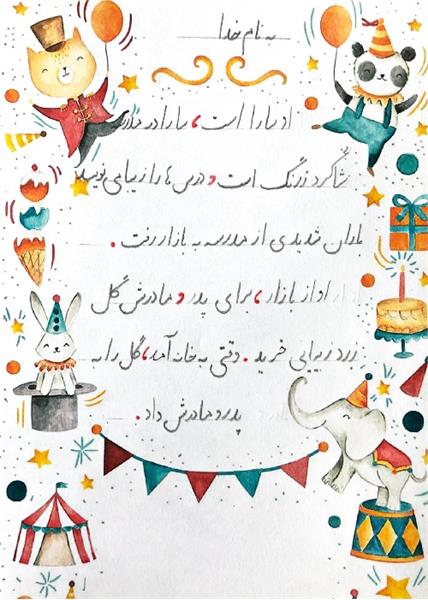 به نام خدا
او سارا است، سارا در مدرسه
شاگرد زرنگ است و درس ها را زیبا می نویسد
باران شدیدی از مدرسه به بازار رفت.
او از بازار، برای پدر و مادرش گل
زرد زیبایی خرید. وقتی به خانه آمد، گل را به
پدر و مادرش داد.